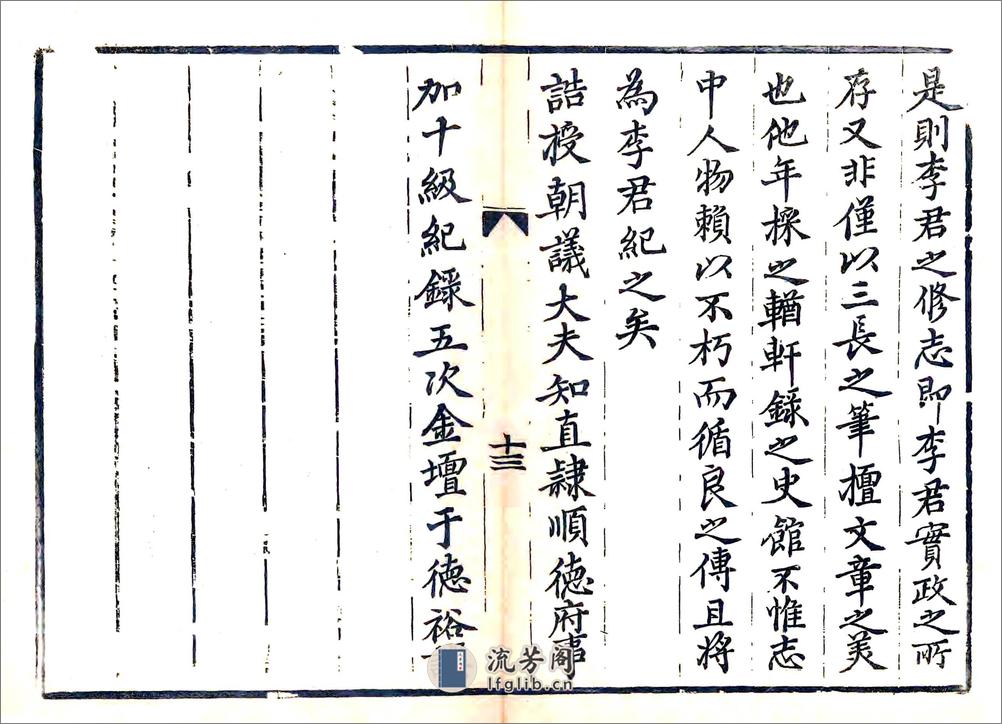 是則李君之修志即李君實政之所
存又非僅以三長之筆擅文章之美
也他年採之輶軒錄之史館不惟志
中人物賴以不朽而循良之傳且將
為李君紀之矣
誥授朝議大夫知直隸順德府事
十三
加十級紀錄五次金壇于德裕
流芳阁
lfglib.cn